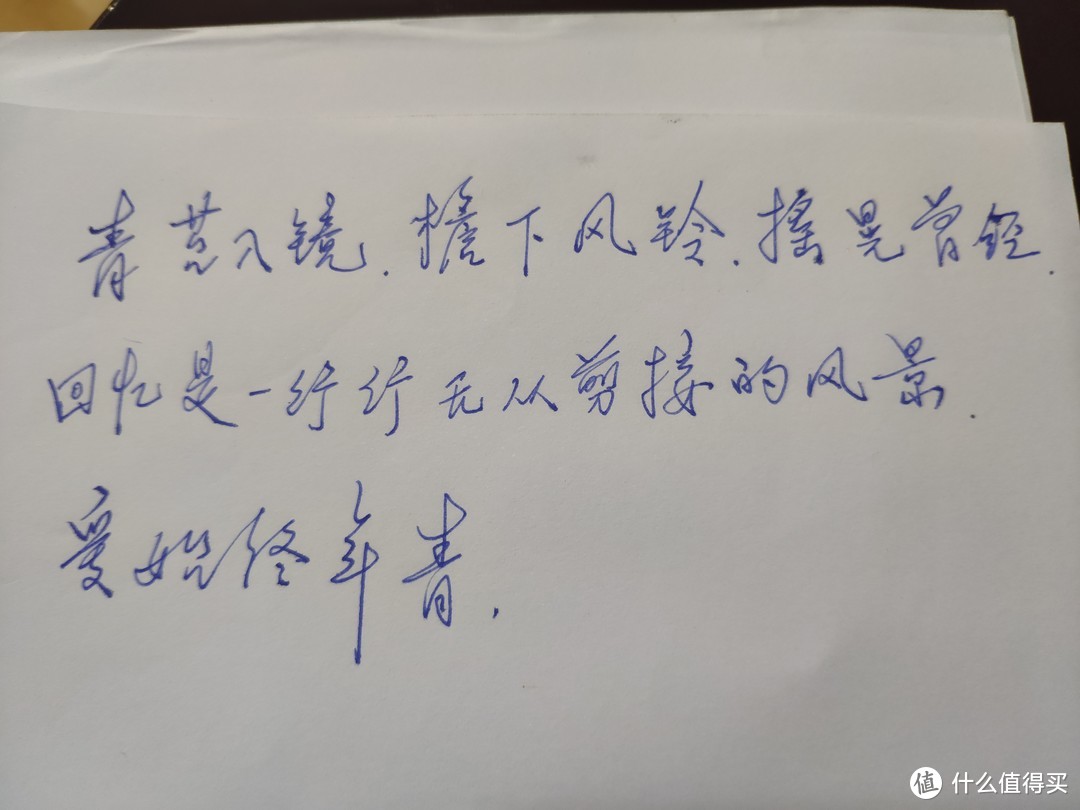 青苔入镜.檐下风铃.摇晃曾经.
回忆是一行行无从剪接的风景.
爱始终年青.
值 什么值得买